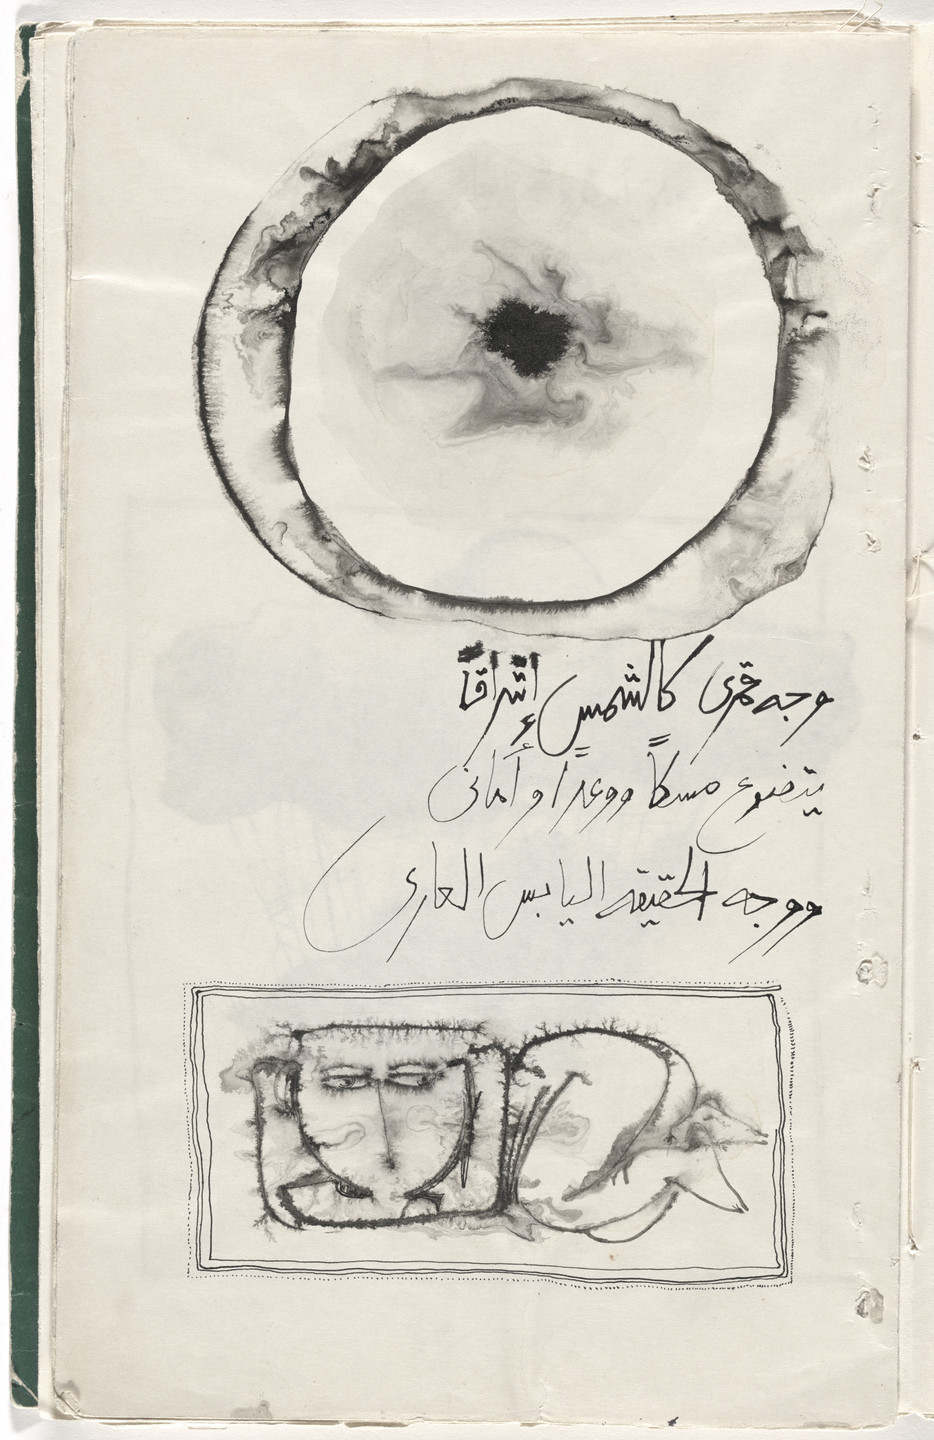 وجه قمرى كالشمس إشراقاً
يتضوع مسكاً ووعداً وأمانى
ووجه الحقيقه اليابس العارى